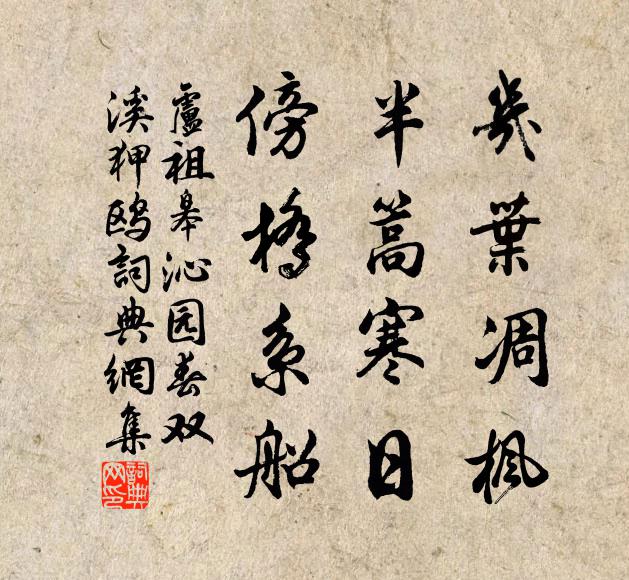 幾葉凋楓
半篙寒日
傍橋系船
盧祖皋沁园春双
溪狎鸥詞典網集
詞典网印